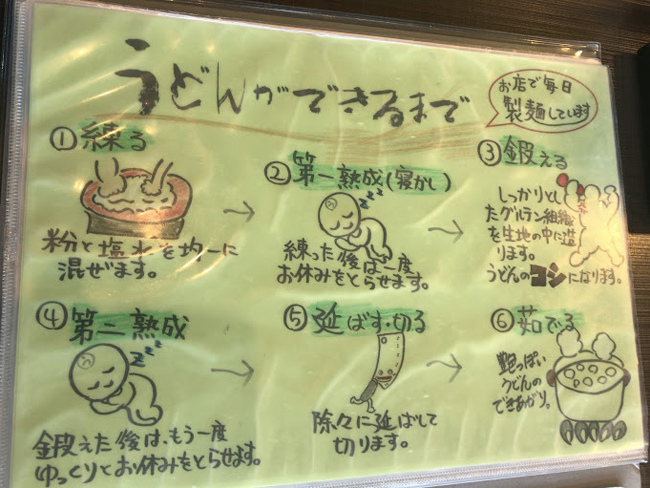 うどんができるまで
お店で毎日
製麺しています
① 練る
粉と塩水を均一に
混ぜます。
② 第一熟成(寝かし)
練った後は一度
お休みをとらせます。
③ 鍛える
しっかりとし
たグルテン組織
を生地の中に造
ります。
うどんのコシになります。
④ 第二熟成
鍛えた後は、もう一度
ゆっくりとお休みをとらせます。
⑤ 延ばす・切る
除々に延ばして
切ります。
⑥ 茹でる
艶っぽい
うどんの
できあがり。